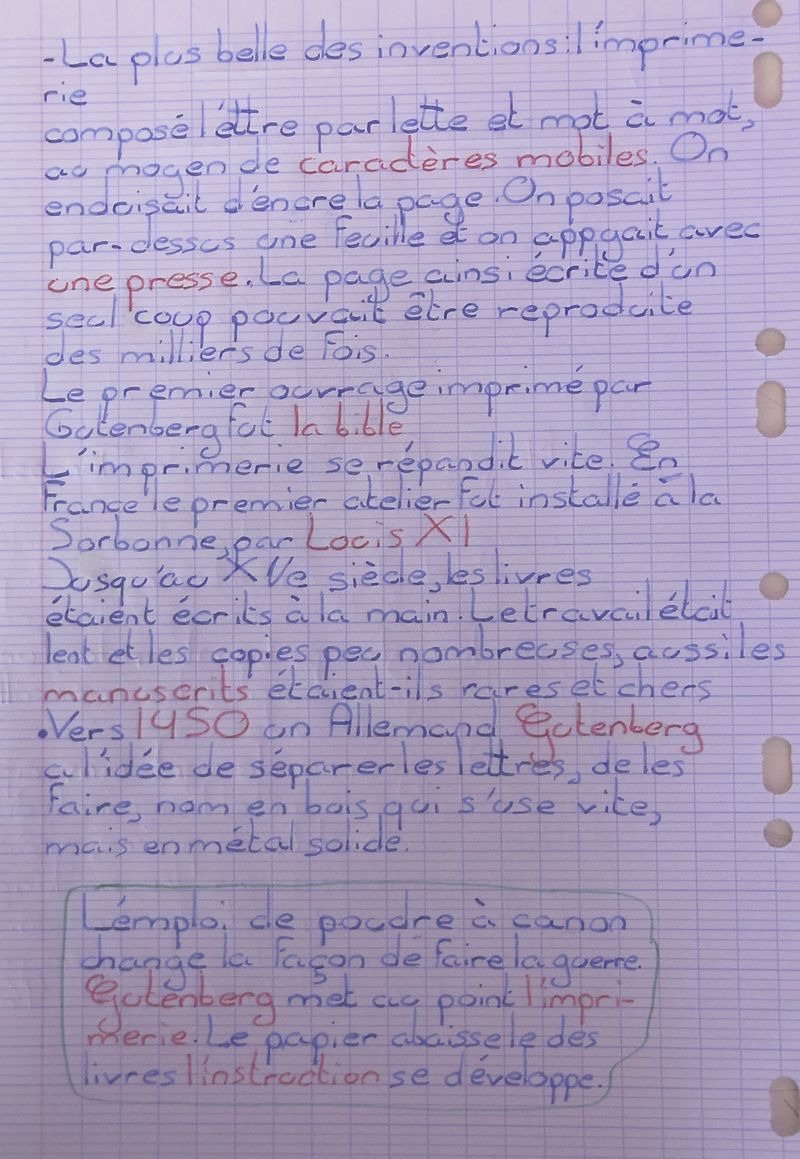 -La plus belle des inventions: l'imprime-
rie
composé l'éttre par lette et mot à mot,
au moyen de caractères mobiles. On
enduisait d'encre la page. On posait
par-dessus une feuille et on appyait avec
une presse. La page ainsi écrite d'un
seul coup pouvait être reproduite
des milliers de fois.
Le premier ouvrage imprimé par
Gutenberg fut la bible
L'imprimerie se répandit vite. En
France le premier atelier fut installé à la
Sorbonne, par Louis XI
Jusqu'au XVe siècle, les livres
étaient écrits à la main. Le travail était
lent et les copies peu nombreuses, aussi les
manuscrits étaient-ils rares et chers
.Vers 1450 un Allemand Gutenberg
a l'idée de séparer les lettres, de les
faire, nom en bois qui s'use vite,
mais en métal solide.
L'emploi de poudre à canon
change la façon de faire la guerre.
Gutenberg met au point l'impri-
merie. Le papier abaisse le des
livres l'instruction se développe.